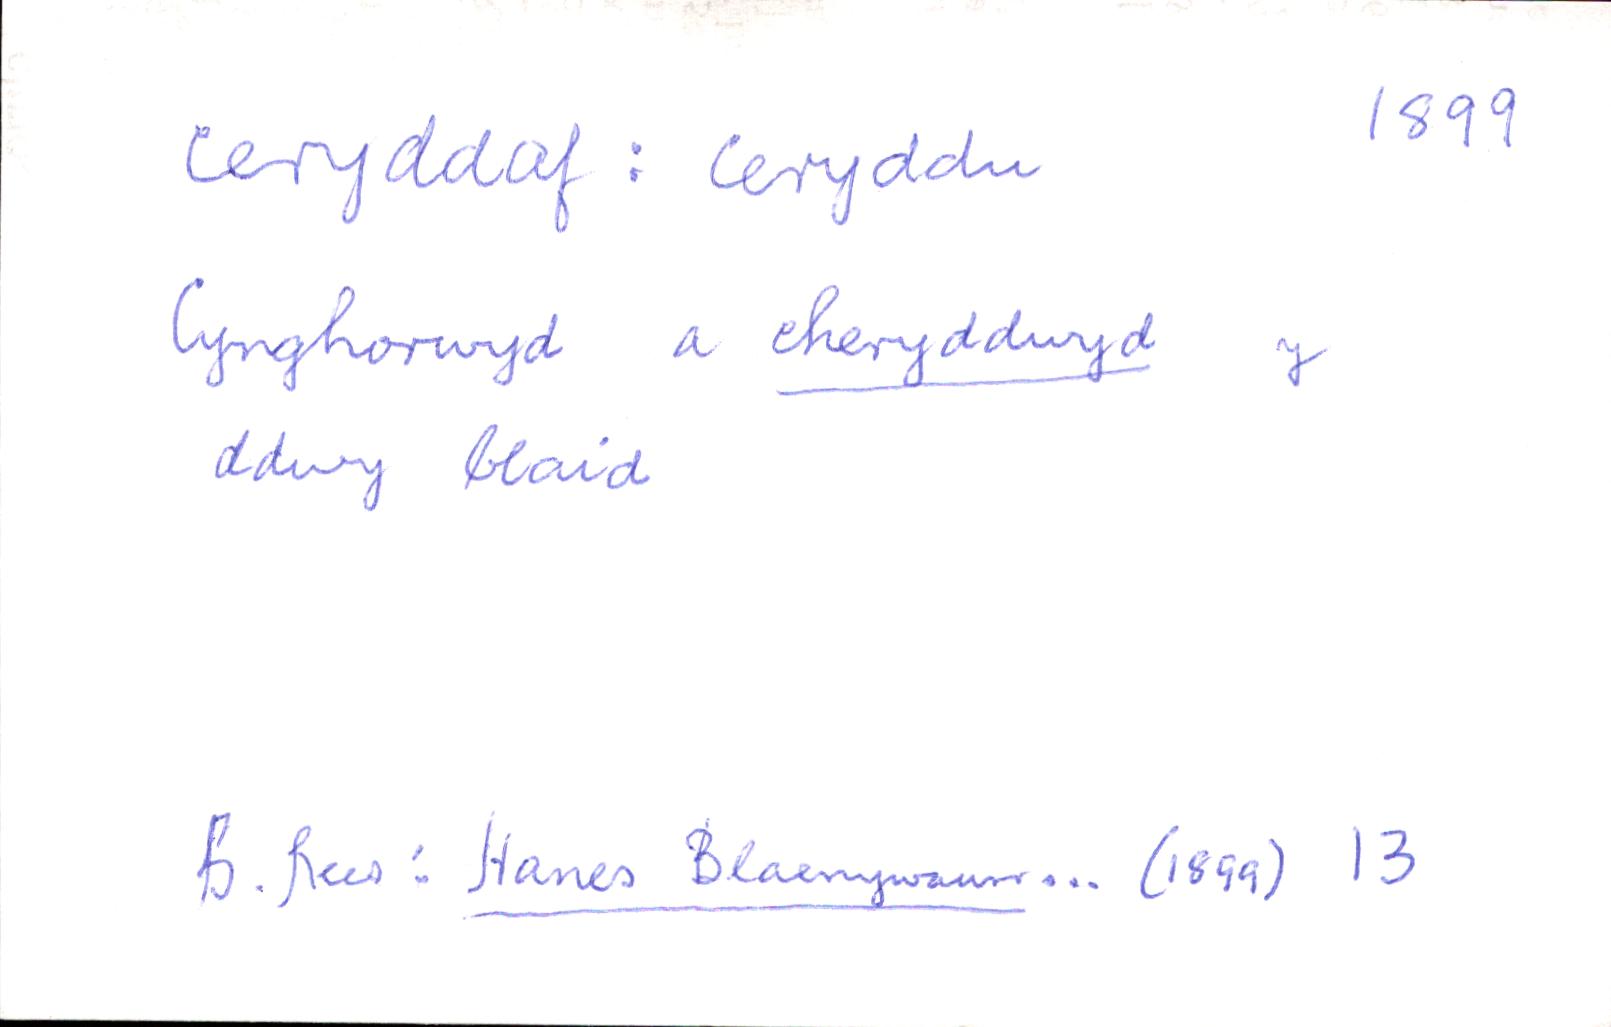 ceryddaf : ceryddu 1899
Cynghorwyd a cheryddwyd y
ddwy blaid
B. Rees : Hanes Blaenywaun ... (1899) 13